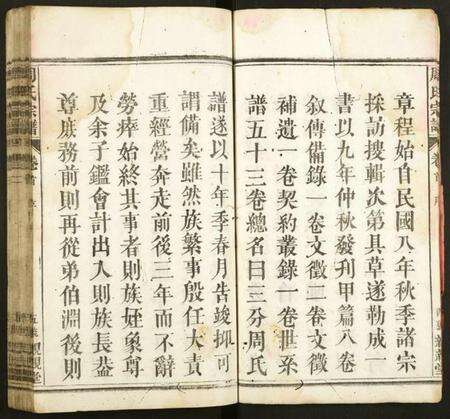 章程始自民國八年秋季諸宗
採訪搜輯次第具草遂勒成一
書以九年仲秋發刋甲篇八卷
叙傳備錄一卷文徵二卷文徵
補遺一卷契約叢錄一卷世系
譜五十三卷總名曰三分周氏
周氏宗譜
卷首
譜遂以十年季春月告竣抑可
謂備矣雖然族繁事殷任大責
重經營奔走前後三年而不辭
勞瘁始終其事者則族姪象尊
及余子鑑會計出入則族長益
尊族務前則再從弟伯淵後則
周氏宗譜
卷首